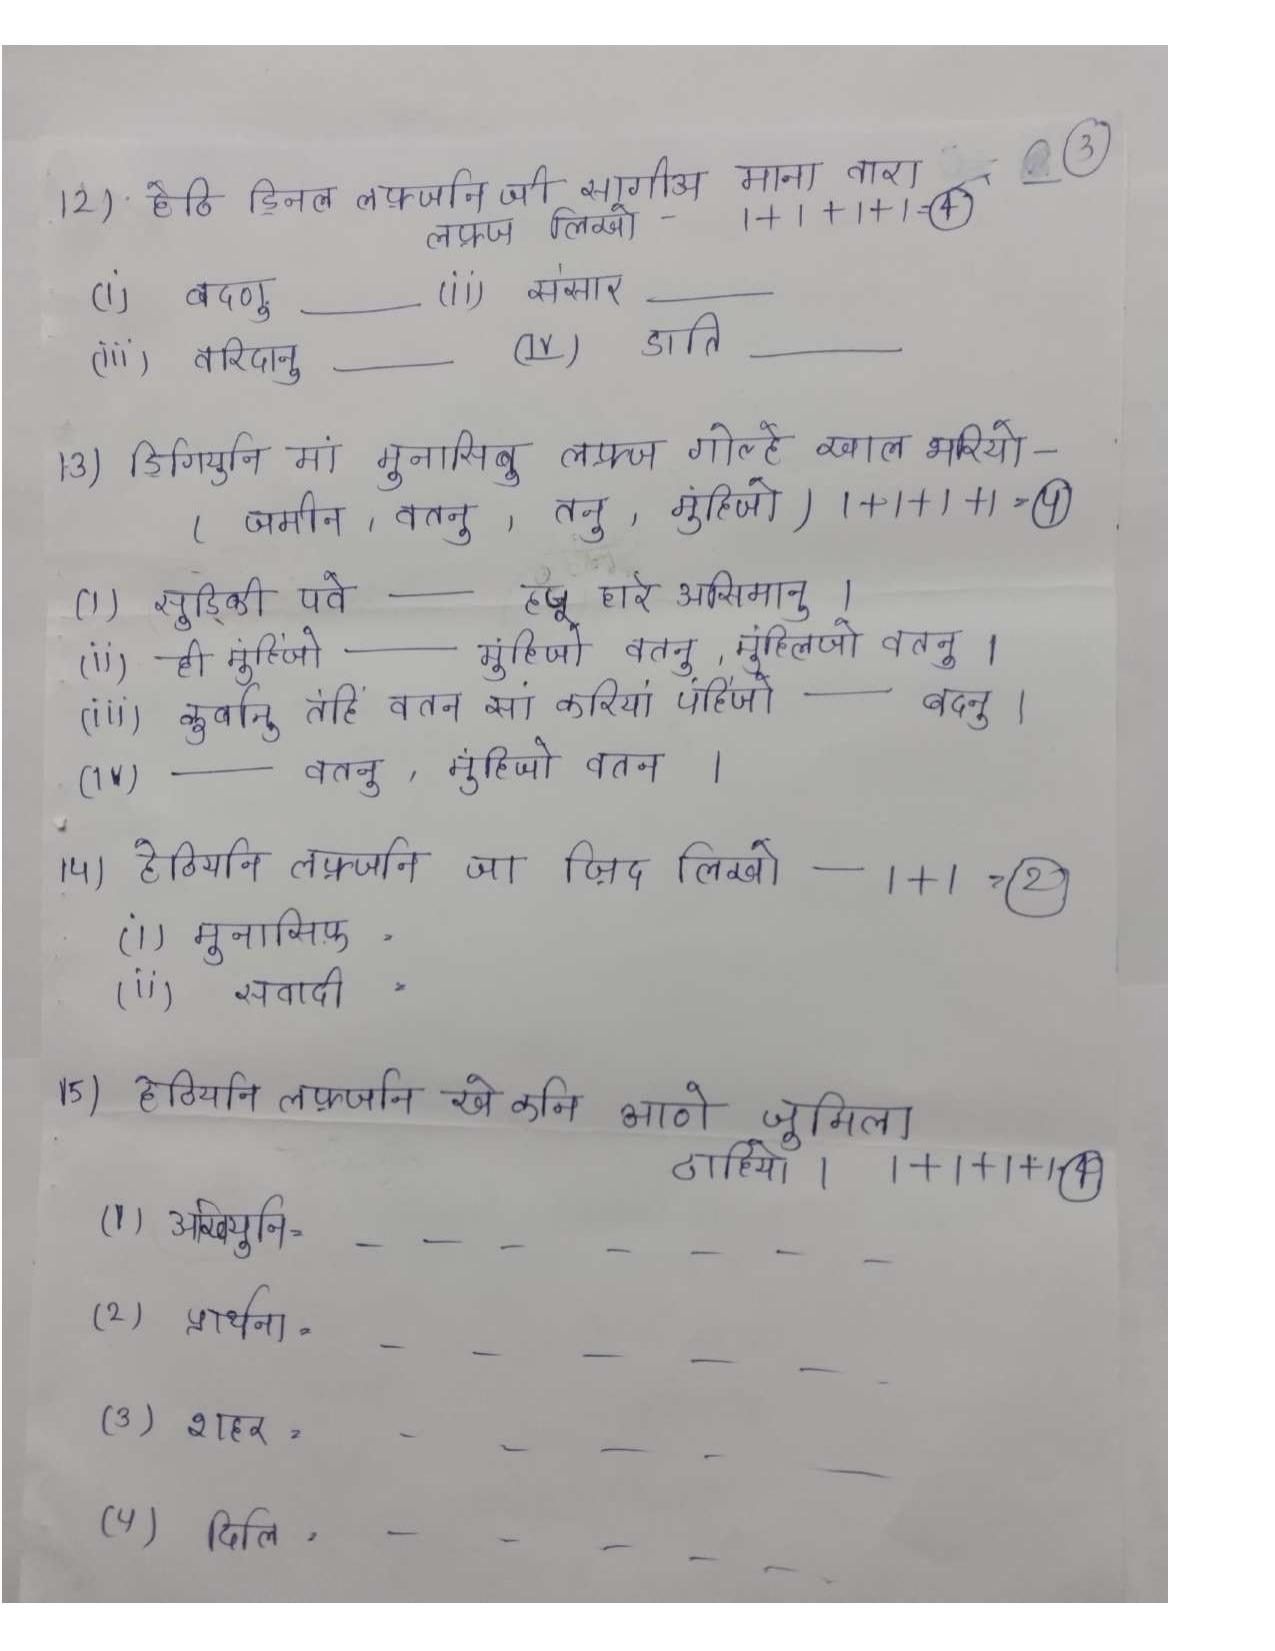 3
12) हेठि ड्रिनल लफ़्जनि जी सागीअ माना वारा
लफ़्ज लिखो - 1+1+1+1=4
(i) बदणु ____ (ii) संसार ____
(iii) वरिदानु ____ (IV) डाति ____
13) डिगियुनि मां मुनासिबु लफ़्ज गोल्हे खाल भरियो -
( जमीन, वतनु, तनु, मुंहिजो ) 1+1+1+1=4
(i) सुड्किी पवे ____ हंजू हारे असिमानु ।
(ii) ही मुंहिंजो ____ मुंहिजो वतनु, मुंहिलजो वतनु ।
(iii) कुर्बानु तंहिं वतन सां करियां पंहिंजो ____ बदनु ।
(IV) ____ वतनु, मुंहिजो वतन ।
14) हेठियनि लफ़्जनि जा ज़िद लिखो — 1+1=2
(i) मुनासिफ़ =
(ii) सवादी =
15) हेठियनि लफ़्जनि खे कनि आणे जुमिला
ठाहियो । 1+1+1+1=4
(1) अखियुनि= _ _ _ _ _ _ _
(2) प्रार्थना = _ _ _ _ _
(3) शहर = _ _ _ _ _
(4) दिलि = _ _ _ _ _